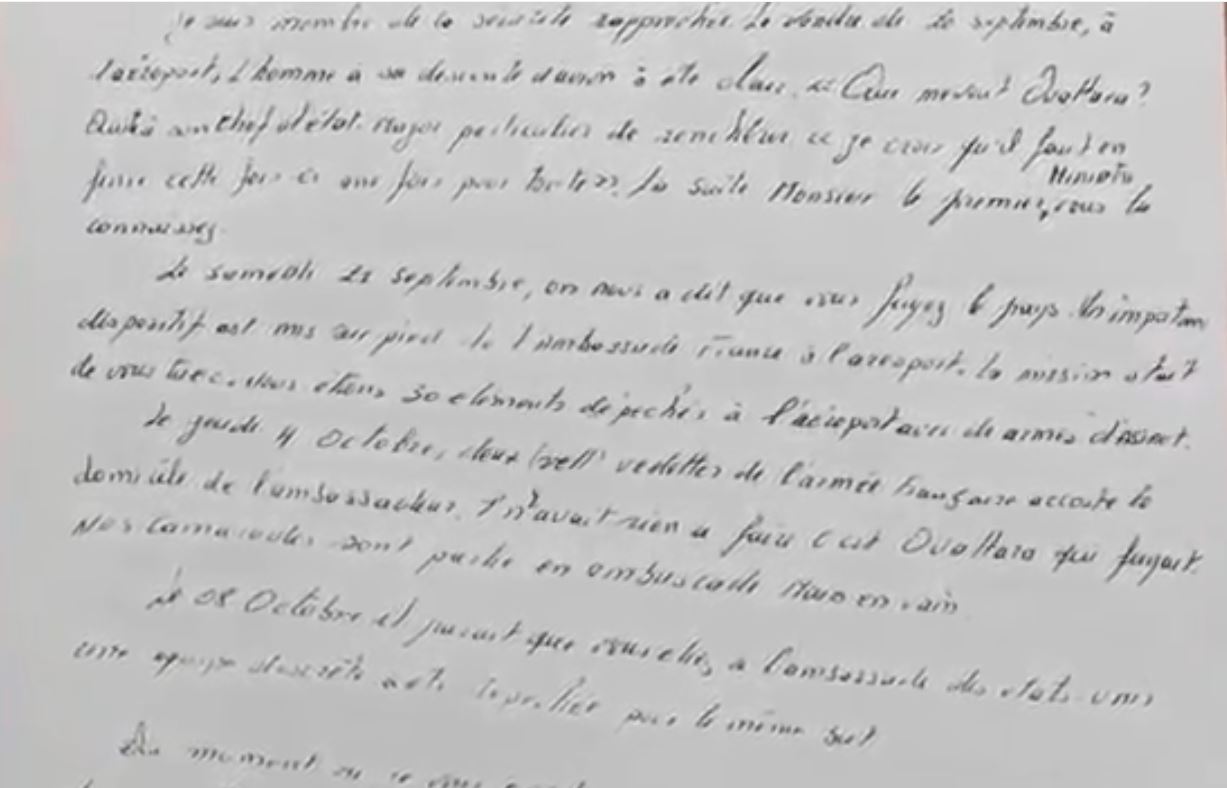 Je suis membre de la sécurité rapprochée. Le vendredi 20 septembre, à
l'aéroport, l'homme à sa descente d'avion à été clair. « Que me veut Ouattara?
chef d'état. Major particulier de renchérir « je crois qu'il faut en
finir cette fois ci une fois pour toute». La suite Monsieur le premier Ministre, vous la
connaissez.
Le samedi 21 septembre, on nous a dit que vous fuyez le pays. Un important
dispositif est mis sur pied de l'ambassade France à l'aéroport. la mission était
de vous tuer. Nous étions 30 éléments dépêchés à l'aéroport avec de armes d'assaut.
Le jeudi 4 Octobre, deux vedettes de l'armée Française accoste le
domicile de l'ambassadeur. n'avait rien a faire c'est Ouattara qui fuyait.
Nos camarades sont partie en embuscade Mais en vain
Le 08 Octobre il parait que vous étiez a l'ambassade des états-unis
une équipe discrète a été dépêchée pour le même but
Au moment ou je vous